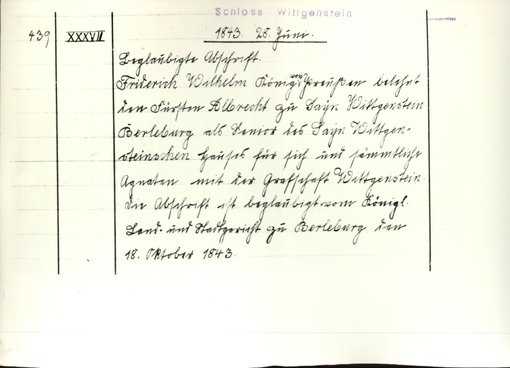 Schloss Wittgenstein
439 XXXVII 1843. 25. Juni.
Beglaubigte Abschrift.
Friderich Wilhelm König von Preußen belehnt
den Fürsten Albrecht zu Sayn Wittgenstein
Berleburg als Senior des Sayn Wittgen-
steinschen Hauses für sich und sämmtliche
Agnaten mit der Grafschaft Wittgenstein.
Die Abschrift ist beglaubigt vom Königl.
Land- und Stadtgericht zu Berleburg den
18. Oktober 1843.